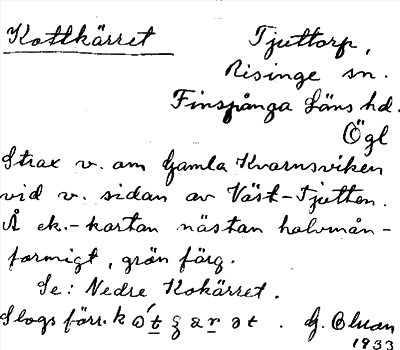 Kottkärret
Tjuttorp,
Risinge sn.
Finspånga Läns hd.
Ögl
Strax v. om Gamla Kvarnsviken
vid v. sidan av Väst-Tjutten.
Å ek.-kartan nästan halvmån-
formigt, grön färg.
Se: Nedre Kokärret.
Slogs förr.
G. Olson
1933